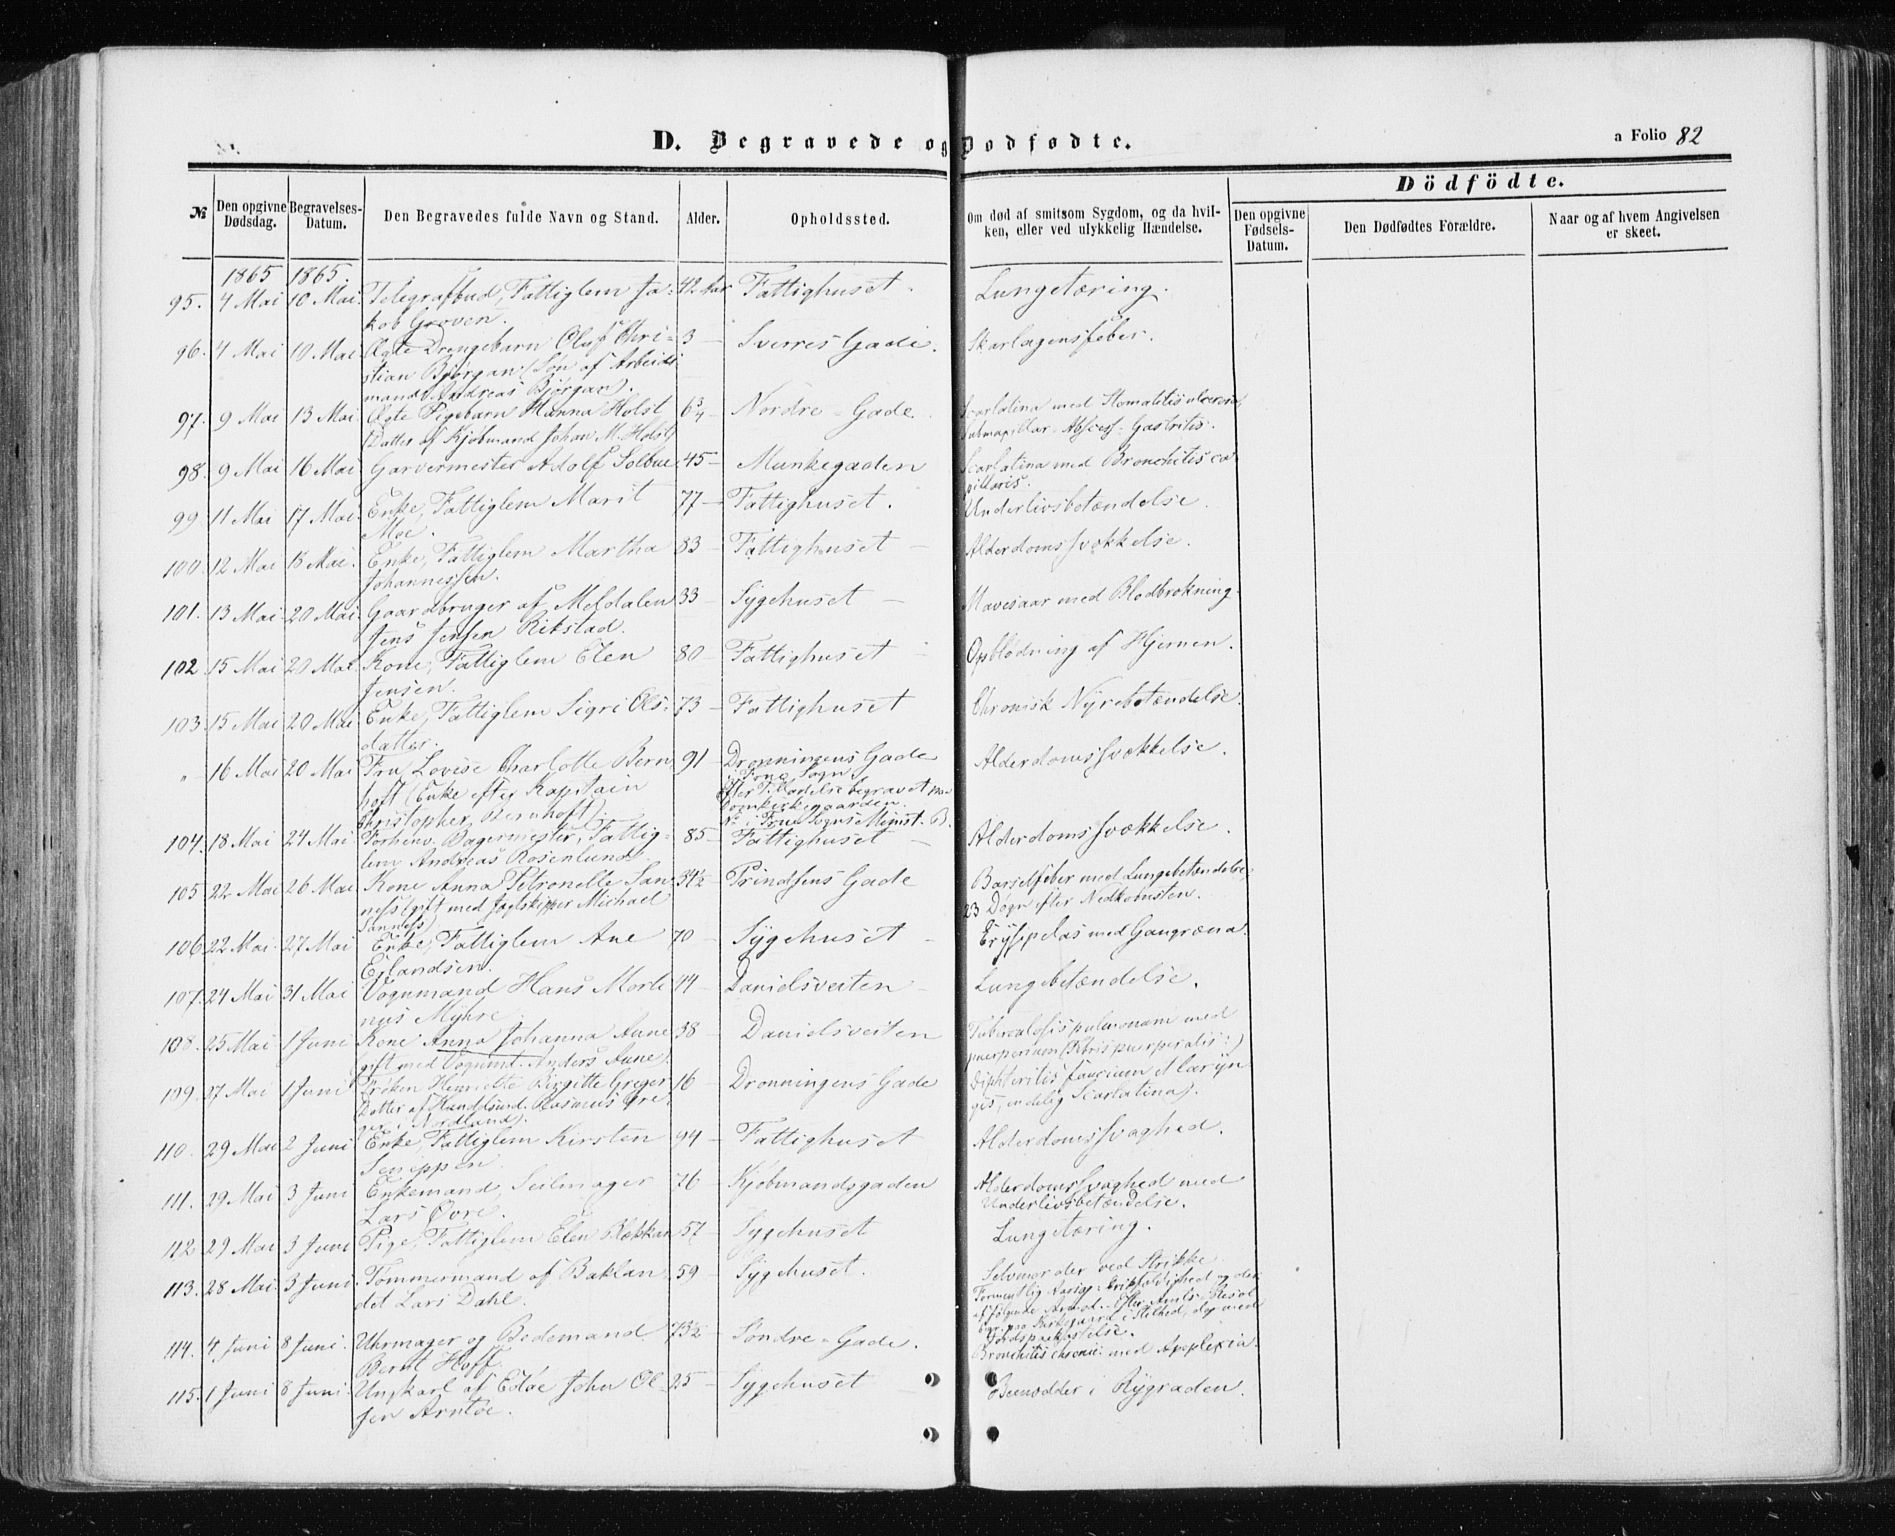 D. Begravede og Dødfødte.
a Folio 82
Dödfödte.
№
Den opgivne Dødsdag.
Begravelses-Datum.
Den Begravedes fulde Navn og Stand.
Alder.
Opholdssted.
Om død af smitsom Sygdom, og da hvil-
ken, eller ved ulykkelig Hændelse.
Den opgivne Fødsels-Datum.
Den Dødfødtes Forældre.
Naar og af hvem Angivelsen
er skeet.
1865 1865.
95. 4 Mai 10 Mai Telegrafbud, Fattiglem Ja- 42 Aar Fattighuset Lungetæring.
kob Groven.
96. 4 Mai 10 Mai Ægte Drengebarn Oluf Chri- 3 — Sverres Gade. Skarlagensfeber.
stian Bjørgan (Søn af Arbeids
mand Andreas Bjørgan).
97. 9 Mai 13 Mai Ægte Pigebarn Hanna Holst 6¾ Nordre-Gade Scarlatina med Stomatitis ulcerosa,
(Datter af Kjøbmand Johan M. Holst) Submaxillar-Absces-Gastritis.
98. 9 Mai 16 Mai Garvermester Adolf Solbue 45 — Munkegaden Scarlatina med Bronchitis ca
pillaris.
99 11 Mai 17 Mai Enke, Fattiglem Marit 77 — Fattighuset. Underlivsbetændelse.
Moe.
100. 12 Mai 18 Mai. Enke, Fattiglem Martha 83 — Fattighuset — Alderdomssvækkelse.
Johannessen.
101. 13 Mai 20 Mai Gaardbruger af Meldalen 33 — Sygehuset — Mavesaar med Blodbrækning.
Jens Jensen Rikstad.
102 15 Mai 20 Mai Kone, Fattiglem Elen 80 — Fattighuset — Opblødning af Hjernen.
Jensen.
103 15 Mai 20 Mai Enke, Fattiglem Sigri Ols- 73 — Fattighuset Chronisk Nyrebetændelse.
datter.
„ 16 Mai 20 Mai Fru Lovise Charlotte Bern 91 Dronningens Gade Alderdomssvækkelse.
hoft (Enke efter Kapitain i Frue Sogn
Christopher Bernhoft). Efter Tilladelse begravet paa
Domkirkegaarden.
No i Frue Sogns Minist. B.
104. 18 Mai 24 Mai Forhenv. Bagermester, Fattig- 85 — Fattighuset — Alderdomssvækkelse.
lem Andreas Rosenlund
105 22 Mai 26 Mai Kone Anna Petronelle San 34½ Prindsens Gade Barselfeber med Lungebetændelse,
ness (gift med Jægtskipper Michael 23 Døgn efter Nedkomsten.
Sanness)
106 22 Mai 27 Mai Enke, Fattiglem Ane 70 — Sygehuset — Erysipelas med Gangræna.
Erlandsen.
107. 24 Mai 31 Mai Vognmand Hans Morti 44 — Danielsveiten — Lungebetændelse.
nus Myhre.
108. 25 Mai 1 Juni Kone Anna Johanna Aune 38 — Danielsveiten Tuberculosis pulmonum med
(gift med Vognmd. Anders Aune) puerperium (Febris puerperalis:)
109. 27 Mai 1 Juni Frøken Henriette Birgitte Greger 16 — Dronningens Gade Diphteritis faucium et laryn
Datter af Handelsmd. Rasmus Gre gis, endelig Scarlatina).
ger i Nordland).
110. 29 Mai 2 Juni Enke, Fattiglem Kirsten 94 — Fattighuset Alderdomssvaghed.
111. 29 Mai 3 Juni Enkemand, Seilmager 76 — Kjøbmandsgaden Alderdomssvaghed med
Lars Øvre. Underlivsbetændelse.
112 29 Mai 3 Juni Pige, Fattiglem Elen Blekkan 57 — Sygehuset Lungetæring.
113. 28 Mai 3 Juni. Tømmermand af Baklan 59 — Sygehuset. Selvmorder ved Strikke
det Lars Dahl.
114. 4 Juni 8 Juni. Uhrmager og Bedemand 73½ — Søndre-Gade. Bronchitis chronic. med Apoplexia.
Bernt Hoff.
115. 1 Juni 8 Juni. Ungkarl af Edøe John Ol- 25 — Sygehuset Beenødder i Rygraden.
sen Arntøe.